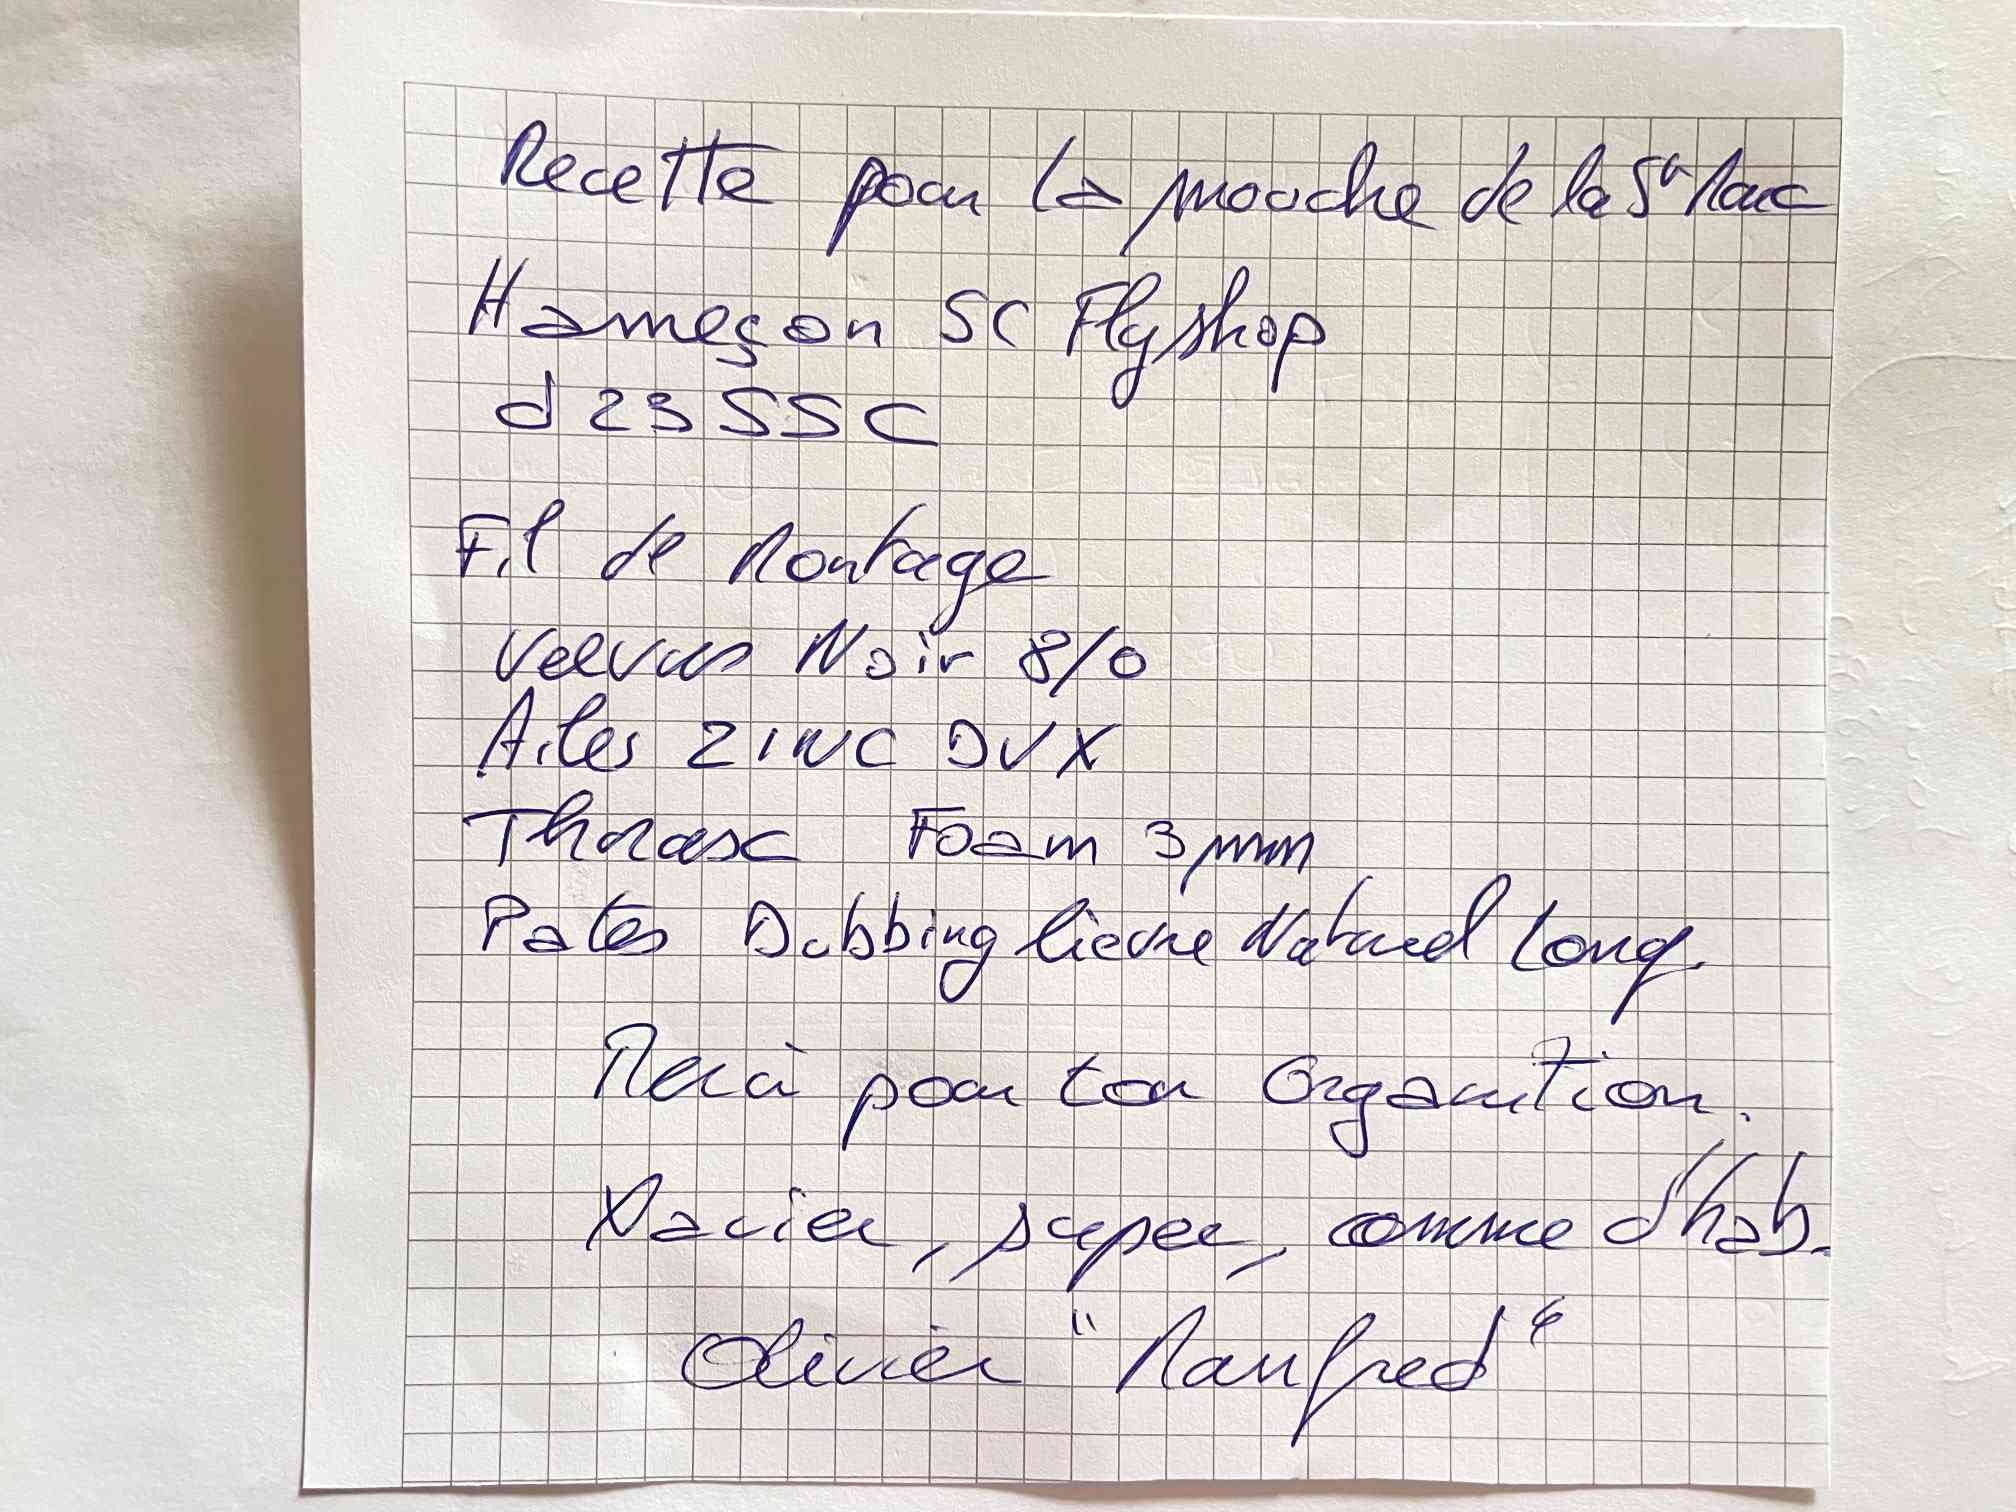 Recette pour la mouche de la St Marc
Hameçon SC Flyshop
d23SSC
Fil de Montage
Veevus Noir 8/0
Ailes ZINC DVX
Thorax Foam 3mm
Pates Dubbing lievre Naturel Long.
Merci pour ton Organition.
Xavier, super, comme d'hab.
Olivier "Manfred"